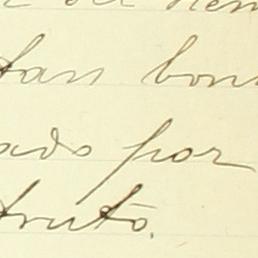 tan bon
ado por
truto.